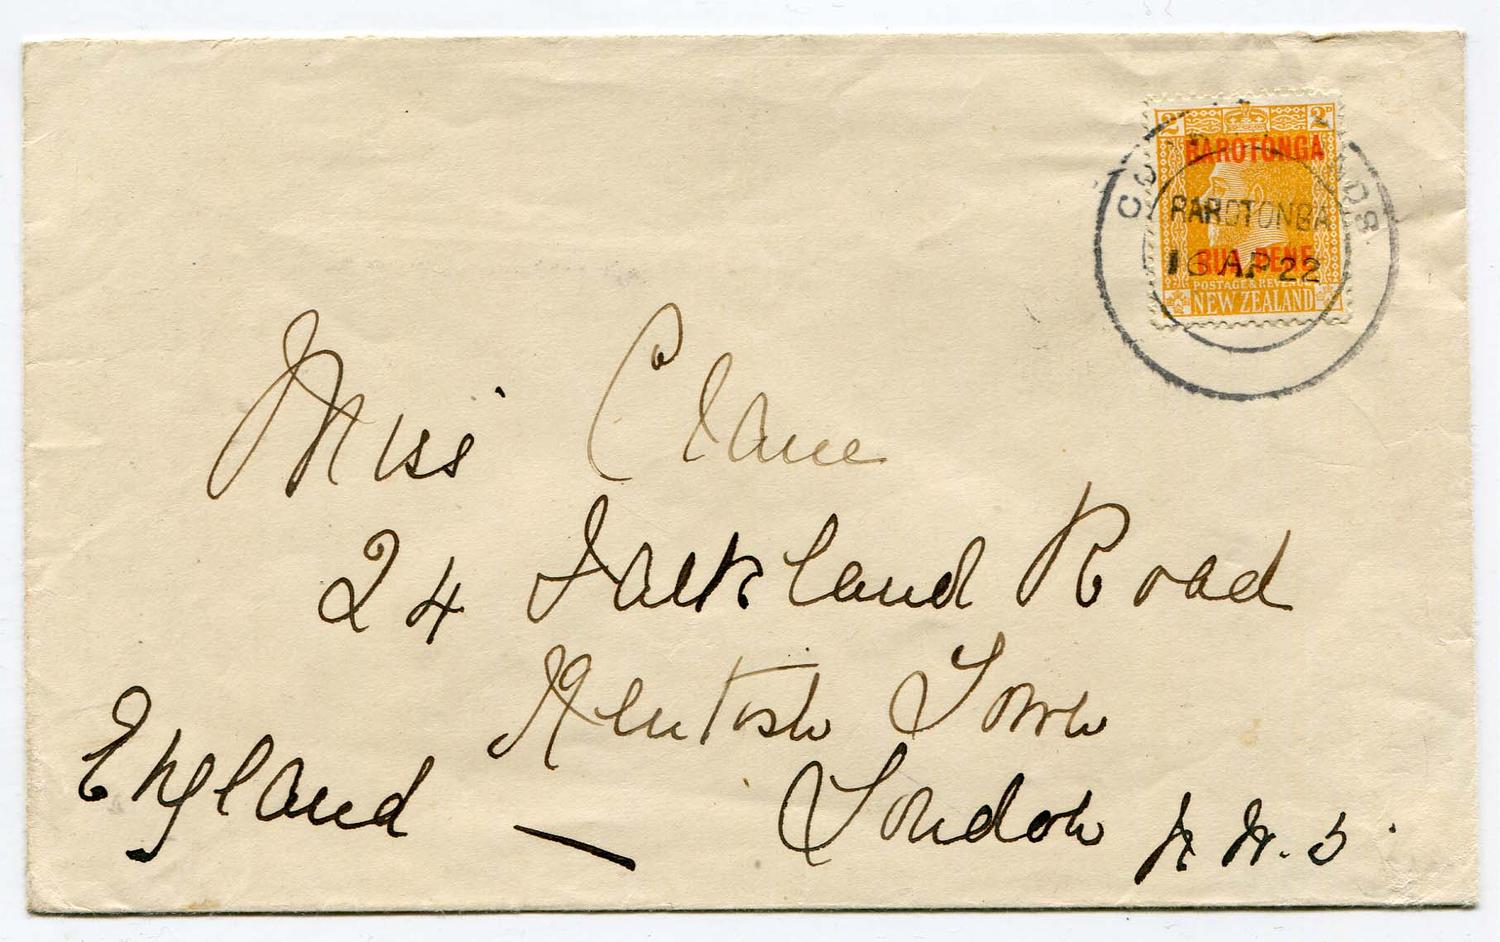 2 2D
RAROTONGA
RUA PENE
POSTAGE & REVENUE
NEW ZEALAND
COOK ISLANDS
RAROTONGA
16 AP 22
Miss Clane
24 Falkland Road
Kentish Town
England — London N.W. 5.